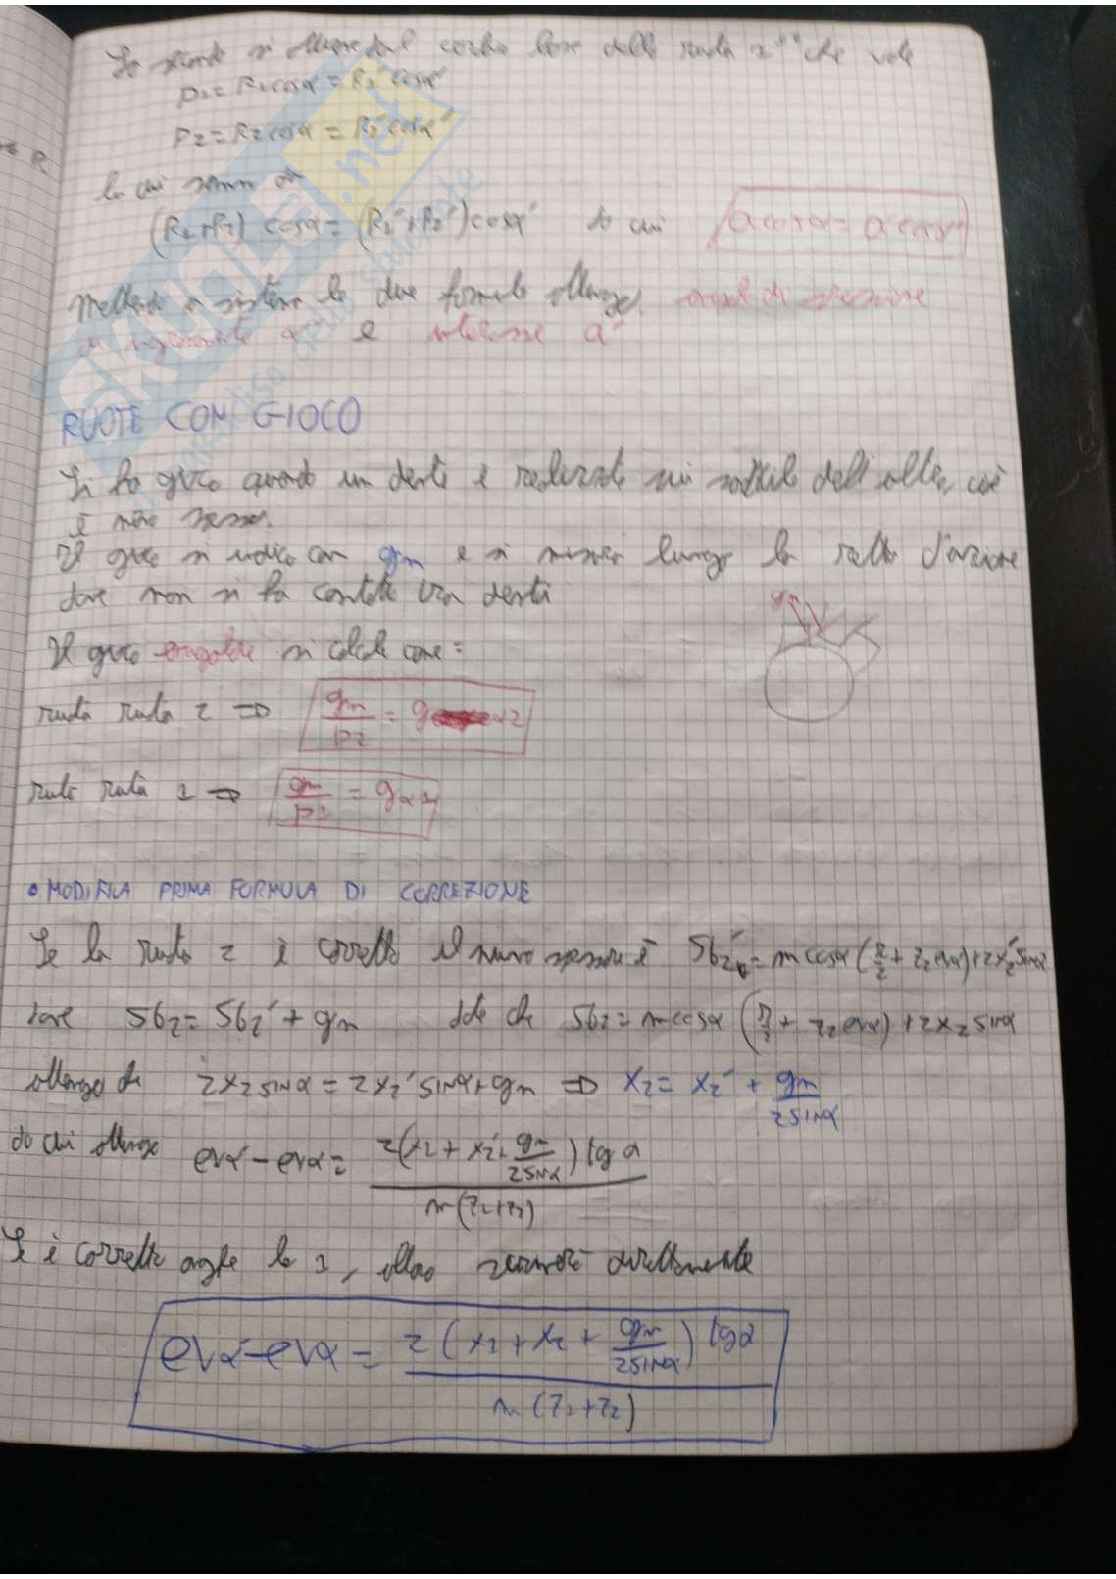 La seconda si ottiene dal cerchio base della ruota 1'' che vale
ρ1 = R1cosα = R1'cosα'
ρ2 = R2cosα = R2'cosα'
la cui somma dà
(R1+R2) cosα = (R1'+R2')cosα' da cui acosα = a'cosα'
Mettendo a sistema le due formule ottengo e interasse a'
RUOTE CON GIOCO
Si ha gioco quando un dente è realizzato più sottile dell'altro, cioè
è meno spesso.
Il gioco si indica con gm e si misura lungo la retta d'azione
dove non si ha contatto tra denti
Il gioco angolare si calcola come:
ruota 2 ⇒ gm/ρ2 = gα2
ruota 1 ⇒ gm/ρ1 = gα1
• MODIFICA PRIMA FORMULA DI CORREZIONE
Se la ruota 2 è corretta il nuovo spessore è Sb2' = m cosα (π/2 + z2 evα) + 2x2' sinα
dove Sb2 = Sb2' + gm dato che Sb2 = m cosα (π/2 + z2 evα) + 2x2 sinα
ottengo da 2x2 sinα = 2x2' sinα + gm ⇒ x2 = x2' + gm/2sinα
da cui ottengo evα' - evα = 2(x1 + x2' + gm/2sinα) tgα / m(z1+z2)
Se è corretta anche la 1, allora direttamente
evα' - evα = 2(x1 + x2 + gm/2sinα) tgα / m(z1+z2)